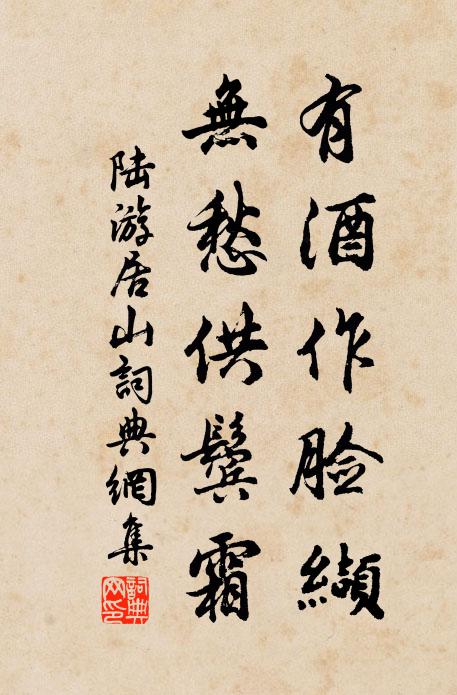 有酒作脸纈
無愁供鬓霜
陆游居山詞典網集
詞典网印